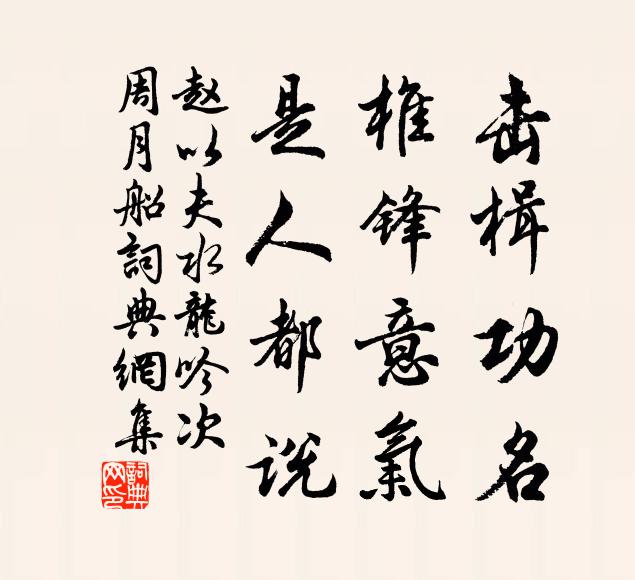 击楫功名
椎锋意氣
是人都说
赵以夫水龍吟次
周月船詞典網集
詞典网印